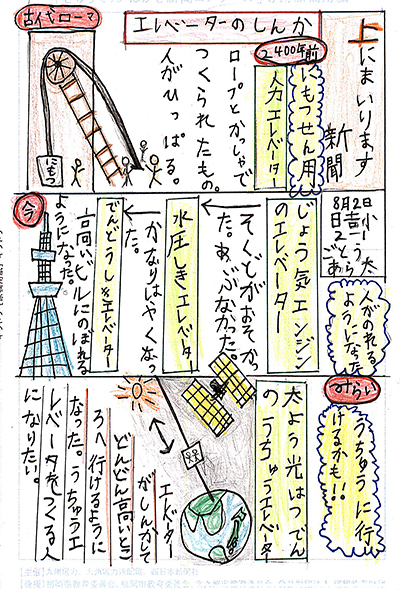 上にまいります
新聞
エレベーターのしんか
古代ローマ
2400年前
にもつせん用
人力エレベーター
ロープとかっしゃで
つくられたもの。
人がひっぱる。
にもつ
8月2日
人がのれる
ようになった
じょう気エンジン
のエレベーター
そくどがおそかっ
た。あぶなかった。
水圧しきエレベーター
かなりはやくなっ
た。
でんどうしきエレベーター
高いビルにのぼれる
ようになった。
今
みらい
うちゅうに行
けるかも!!
太よう光はつでん
のうちゅうエレベーター
エレベーター
がしんかして
どんどん高いとこ
ろへ行けるように
なった。うちゅうエ
レベータをつくる人
になりたい。